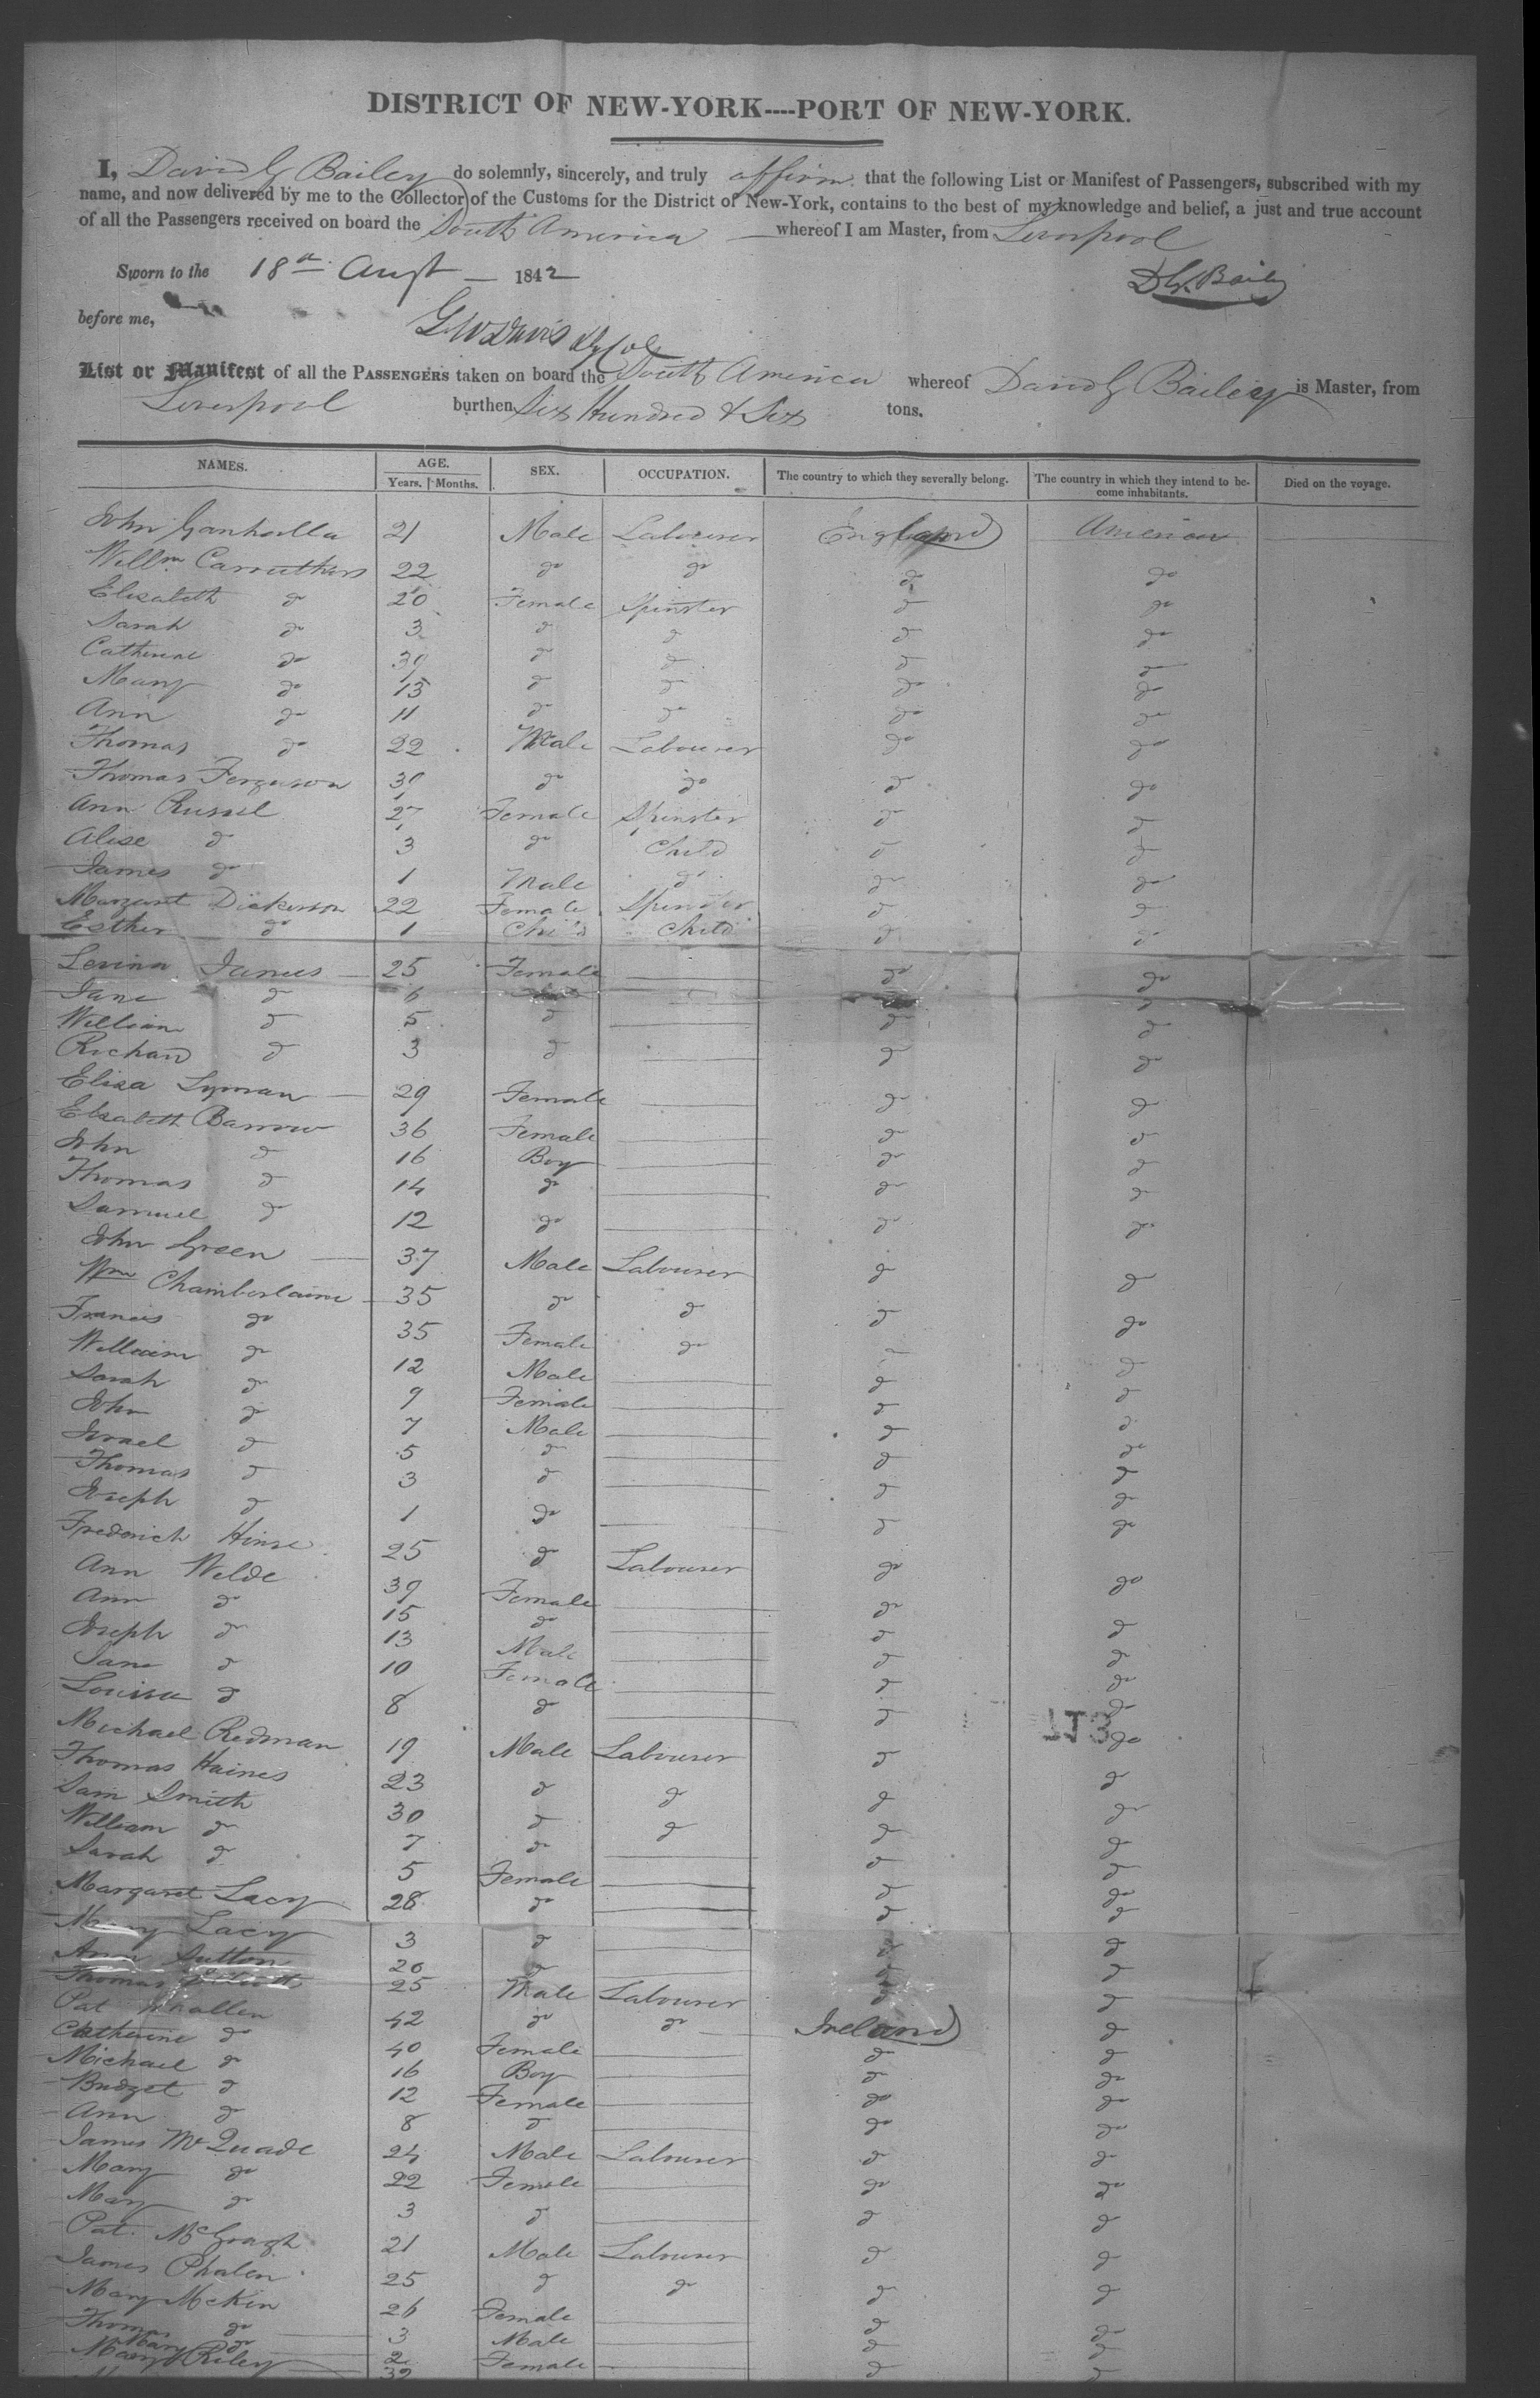 DISTRICT OF NEW-YORK----PORT OF NEW-YORK.
I, David G Bailey do solemnly, sincerely, and truly affirm that the following List or Manifest of Passengers, subscribed with my
name, and now delivered by me to the Collector of the Customs for the District of New-York, contains to the best of my knowledge and belief, a just and true account
of all the Passengers received on board the South America whereof I am Master, from Liverpool
Sworn to the 18th Augt 1842
D G. Bailey
before me,
G W Davis Dy Col
List or Manifest of all the PASSENGERS taken on board the South America whereof David G Bailey is Master, from
Liverpool burthen Six Hundred & Six tons.
NAMES. AGE. SEX. OCCUPATION. The country to which they severally belong. The country in which they intend to be- Died on the voyage.
Years. Months. come inhabitants.
John 21 Male Labourer England America
Willm Carruthers 22 do do do do
Elizabeth do 20 Female Spinster do do
Sarah do 3 do do do do
Catherine do 39 do do do do
Mary do 13 do do do do
Ann do 11 do do do do
Thomas do 22 Male Labourer do do
Thomas Ferguson 30 do do do do
Ann Russel 27 Female Spinster do do
Alise do 3 do Child do do
James do 1 Male do do do
Margaret Dickerson 22 Female Spinster do do
Esther do 1 Child Child do do
Levina James 25 Female do do
Jane do 6 do
William do 5 do do do
Richard do 3 do do do
Eliza Lyman 29 Female do do
Elzabeth Barrow 36 Female do do
John do 16 Boy do do
Thomas do 14 do do do
Samuel do 12 do do do
John Green 37 Male Labourer do do
Wm Chamberlaine 35 do do do do
Frances do 35 Female do do do
William do 12 Male do do
Sarah do 9 Female do do
John do 7 Male do do
Israel do 5 do do do
Thomas do 3 do do do
Joseph do 1 do do do
Frederick Hinse 25 do Labourer do do
Ann Welde 39 Female do do
Ann do 15 do do do
Joseph do 13 Male do do
Jane do 10 Female do do
Louisa do 8 do do do
Michael Redman 19 Male Labourer do do
Thomas Haines 23 do do do do
Sam Smith 30 do do do do
William do 7 do do do
Sarah do 5 Female do do
Margaret Lacy 28 do do do
Mary Lacy 3 do do do
Ann Sutton 20 do do do
Thomas 25 Male Labourer do do
Pat Whallen 42 do do Ireland do
Catherine do 40 Female do do
Michael do 16 Boy do do
Bridget do 12 Female do do
Ann do 8 do do do
James McQuade 24 Male Labourer do do
Mary do 22 Female do do
Mary do 3 do do do
Pat. McGragh 21 Male Labourer do do
James Phalen 25 do do do do
Mary McKin 26 Female do do
Thomas do 3 Male do do
Mary do 2 Female do do
Mary Riley 32